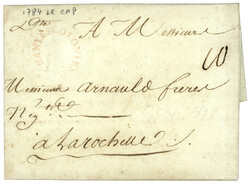 1784 LE CAP
A Messieurs
10
Messieurs Arnauld freres
Neg.ts
a Larochelle